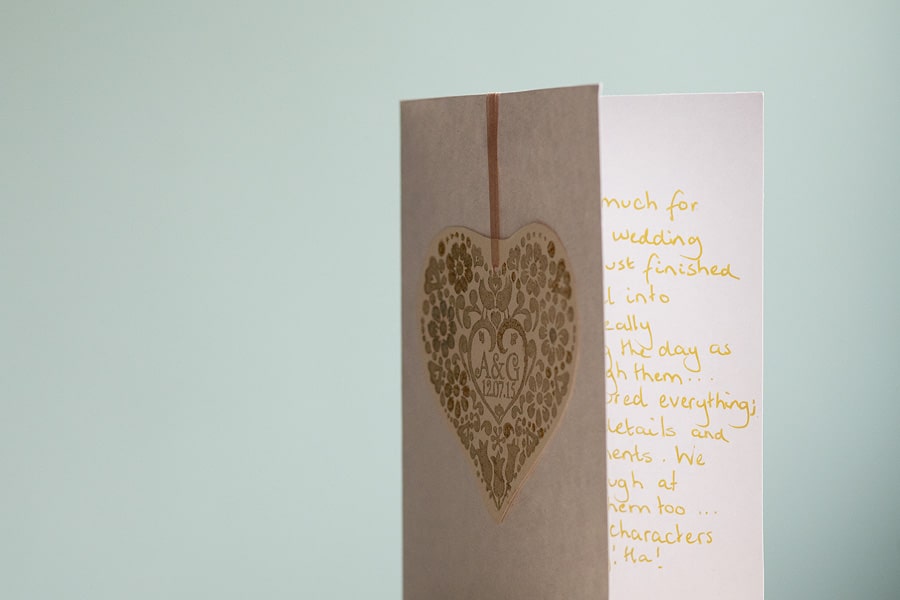 A&G
12.07.15
much for
wedding
ust finished
l into
eally
g the day as
gh them...
ored everything;
details and
ents. We
ugh at
hem too ...
characters
! Ha!